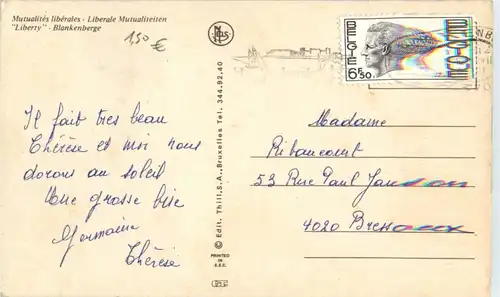 Mutualités libérales - Liberale Mutualiteiten
"Liberty" - Blankenberge
1,50 €
BELGIE
6F50
Il fait très beau
Thérèse et moi nous
dorons au soleil
Une grosse bise
Germaine
Thérèse
© Edit. Thill, S.A., Bruxelles Tel. 344.92.40
PRINTED
IN
E.E.C.
Madame
Ribancourt
53 Rue Paul
4020